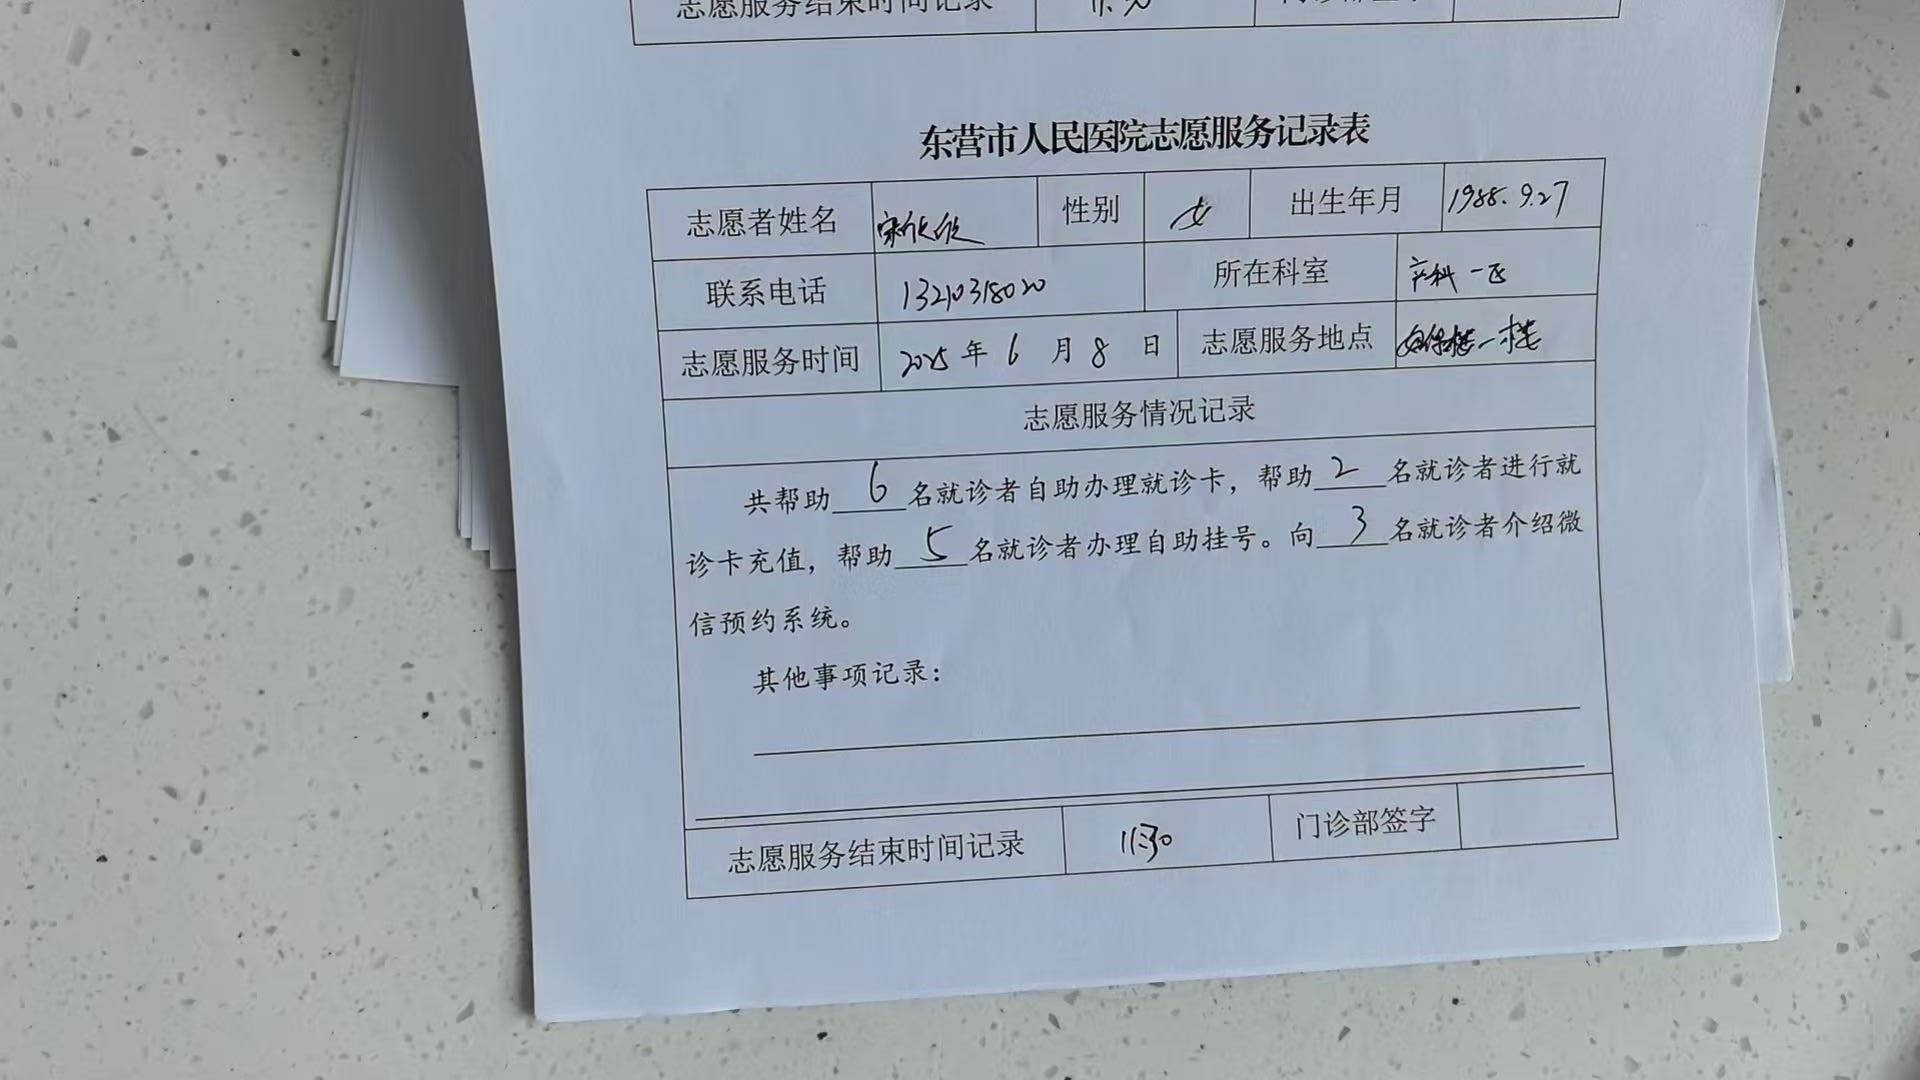 志愿服务结束时间记录
东营市人民医院志愿服务记录表
志愿者姓名 宋 性别 女 出生年月 1988.9.27
联系电话 13210318020 所在科室 产科一区
志愿服务时间 2025年6月8日 志愿服务地点 妇保楼一楼
志愿服务情况记录
共帮助6名就诊者自助办理就诊卡，帮助2名就诊者进行就
诊卡充值，帮助5名就诊者办理自助挂号。向3名就诊者介绍微
信预约系统。
其他事项记录：
志愿服务结束时间记录 11:30 门诊部签字